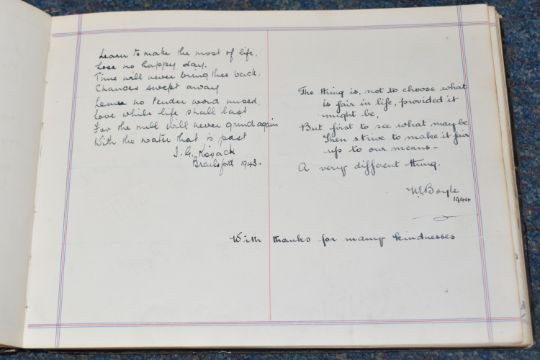 Learn to make the most of life,
Lose no happy day,
Time will never bring thee back
Chances swept away
Leave no tender word unsaid,
Love while life shall last
For the mill will never grind again
With the water that is past
J. G.
Brailsford 1943.
The thing is, not to choose what
is fair in life, provided it
might be,
But first to see what may be
Then strive to make it fair
up to our means -
A very different thing.
Boyle
1944
With thanks for many kindnesses